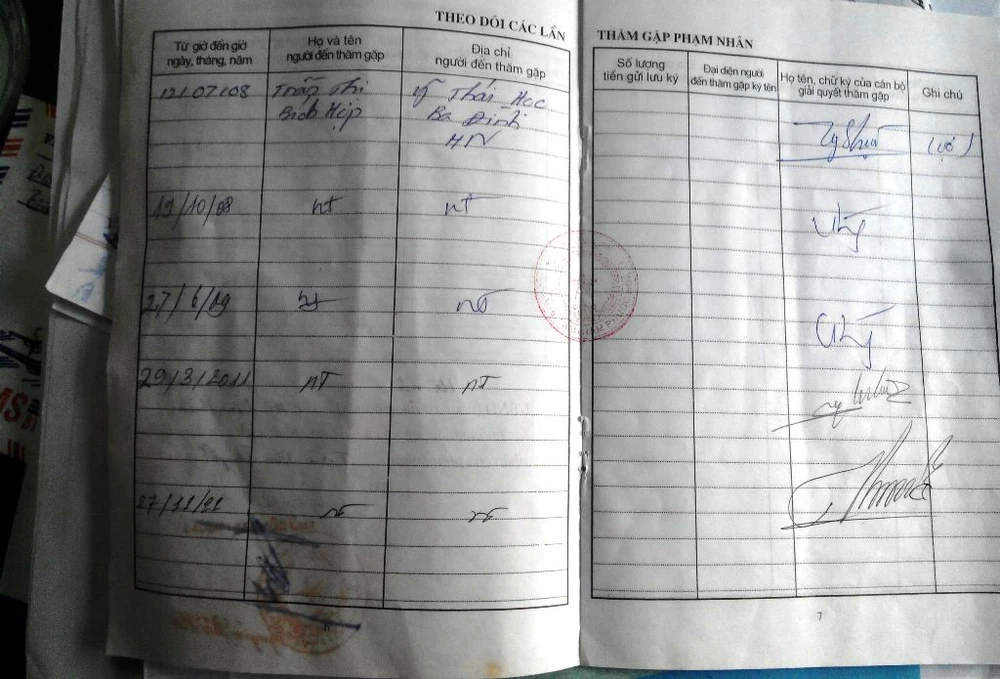 THEO DÕI CÁC LẦN THĂM GẶP PHẠM NHÂN
Từ giờ đến giờ ngày, tháng, năm
Họ và tên người đến thăm gặp
Địa chỉ người đến thăm gặp
Số lượng tiền gửi lưu ký
Đại diện người đến thăm gặp ký tên
Họ tên, chữ ký của cán bộ giải quyết thăm gặp
Ghi chú
12/07/08 Trần Thị Thái Học
Bích Hợp Ba Đình
HN
19/10/08 nt nt
27/6/09 nt nt
29/3/2011 nt nt
27/11/ nt nt
7